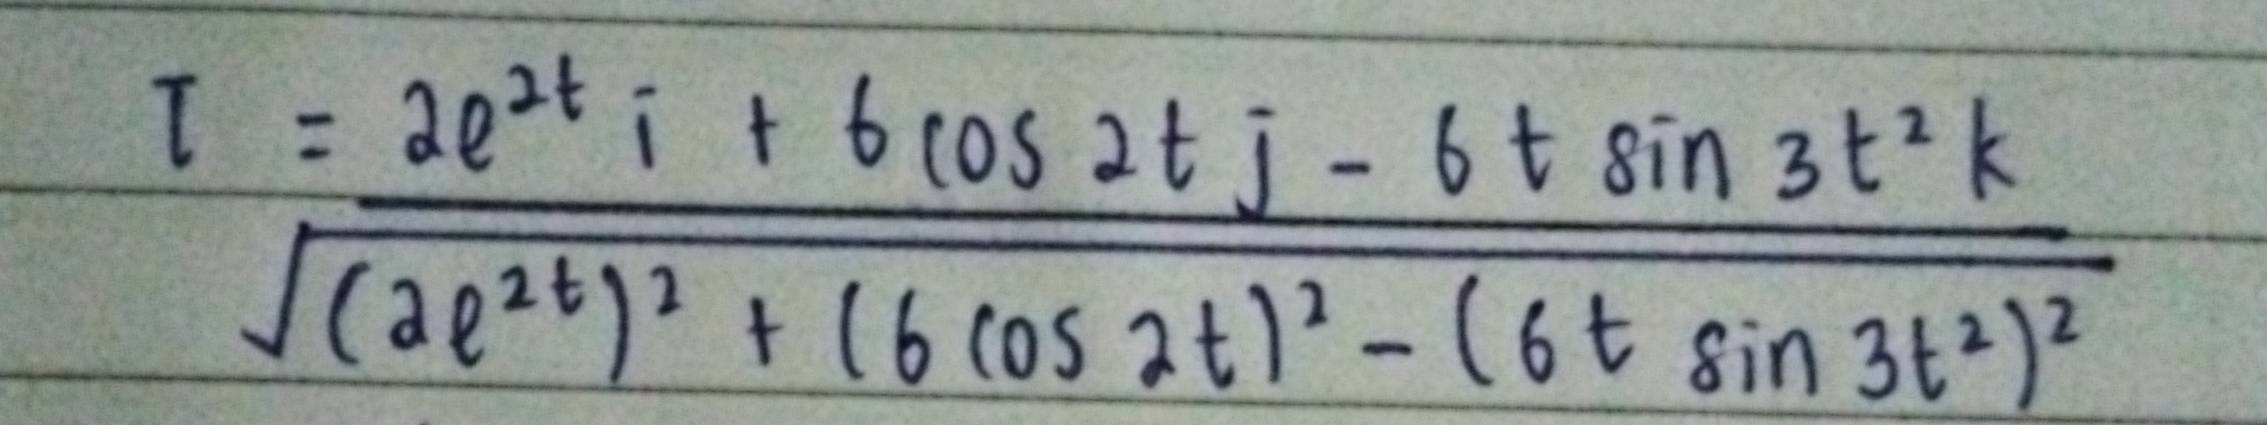 T = 2e^{2t} i + 6 cos 2t j - 6 t sin 3t² k
√((2e^{2t})² + (6 cos 2t)² - (6t sin 3t²)²)